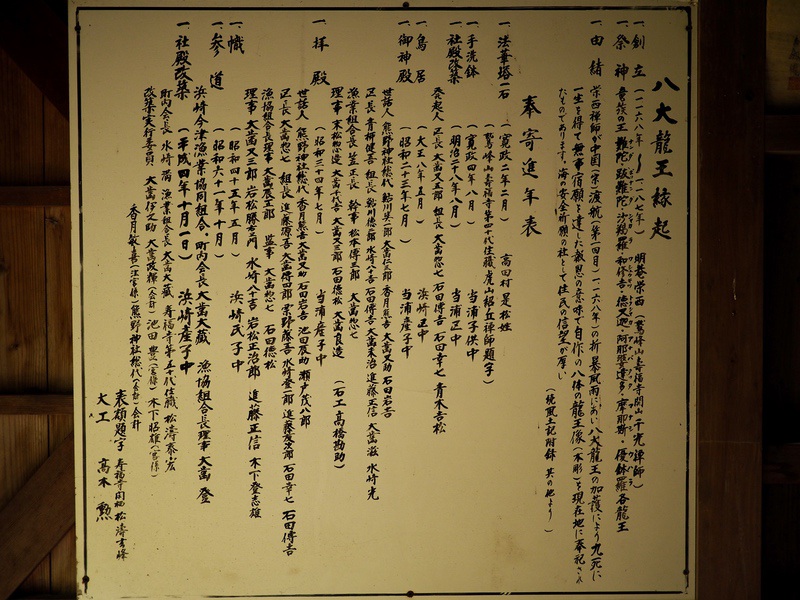 八大龍王縁起
一、創立 (一一六八年〜一一八七年) 明菴栄西(鷲峰山寿福寺開山千光禅師)
一、祭神 善哉の王 難陀・跋難陀・沙羯羅・和修吉・徳叉迦・阿那婆達多・摩那斯・優鉢羅各龍王
一、由緒 栄西禅師が中国(宋)渡航(第一回目)(一一六八年)の折暴風雨にあい、八大龍王の加護により九死に
一生を得て無事宿願を達した報恩の意味で自作の八体の龍王像(木彫)を現在地に奉祀され
たものであります。海の安全祈願の社として住民の信望が厚い
(続風土記附録 其の他より)
奉寄進年表
一、法華塔一石 (寛政二年二月) 高田村 是松姓
(鷲峰山寿福寺第四十代住職 虎山紹丘禅師題字)
一、手洗鉢 (寛政四年八月) 当浦子供中
一、社殿改築 (明治二十八年八月) 当浦正中
発起人 正長 大萬又五郎 組長 大萬惣七 石田傳吉 石田幸七 青木吉松
一、鳥居 (大正八年五月) 浜崎正中
一、御神殿 (昭和二十三年七月) 当浦産子中
世話人 熊野神社総代 鮎川昊二郎 大萬仁三郎 香月熊吉 大萬又助 石田岩吉
正長 青柳健吾 組長 鮎川徳一郎 水崎八十吉 石田傳吉 大萬末治 進藤正信 大萬滋 水崎光
漁業組合長 笠正長 幹事 松本傳三郎 大萬惣七
理事 末松惣造 大萬千代吉 大萬又三郎 石田徳松 大萬良造 (石工高橋勘助)
一、拝殿 (昭和二十四年七月) 当浦産子中
世話人 熊野神社総代 香月熊吉 大萬又助 石田岩吉 池田辰助 瀬戸茂八郎
正長 大萬惣七 組長 進藤源吾 大萬傳四郎 栗野藤吾 水崎登三郎 進藤茂次郎 石田幸七 石田傳吉
漁協組合長理事 大萬辰五郎 監事 大萬惣七 石田徳松
理事 大萬又三郎 岩松勝右エ門 水崎八十吉 岩松正治郎 進藤正信 木下登志雄
一、幟 (昭和四十三年五月) 浜崎氏子中
一、参道 (昭和六十一年十月)
一、社殿改築 (平成四年十月一日) 浜崎産子中
浜崎今津漁業協同組合、町内会長 大萬大蔵 漁協組合長理事 大萬登
町内会長 水崎満 漁業組合長 大萬大蔵 寿福寺第五十代住職 松濤泰宏
改築実行委員 大萬伊之助 大萬政輝(会計) 池田豊(宮係) 木下昭雄(宮係)
香月敏喜(注宮係) 熊野神社総代(会計)会計
表額題字 寿福寺閑栖 松濤玄峰
大工 高木勲